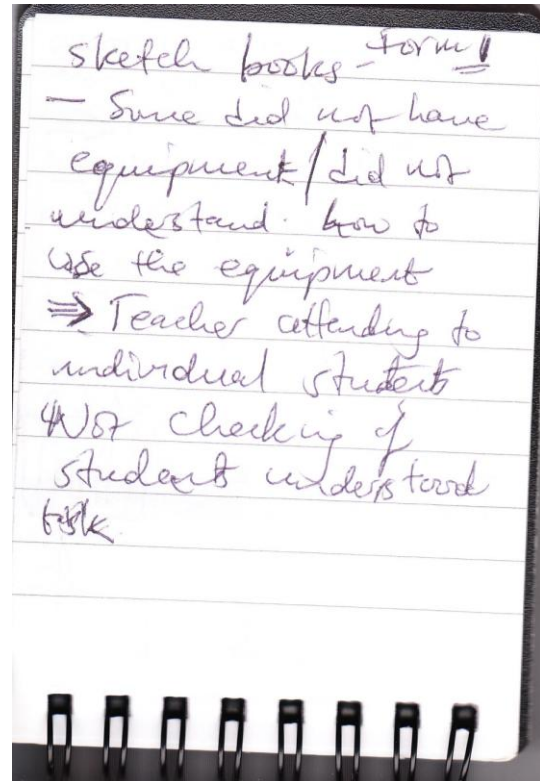 sketch books - Form 1
— Some did not have
equipment/did not
understand. how to
use the equipment
⇒ Teacher attending to
individual students
Not checking if
students understood
task